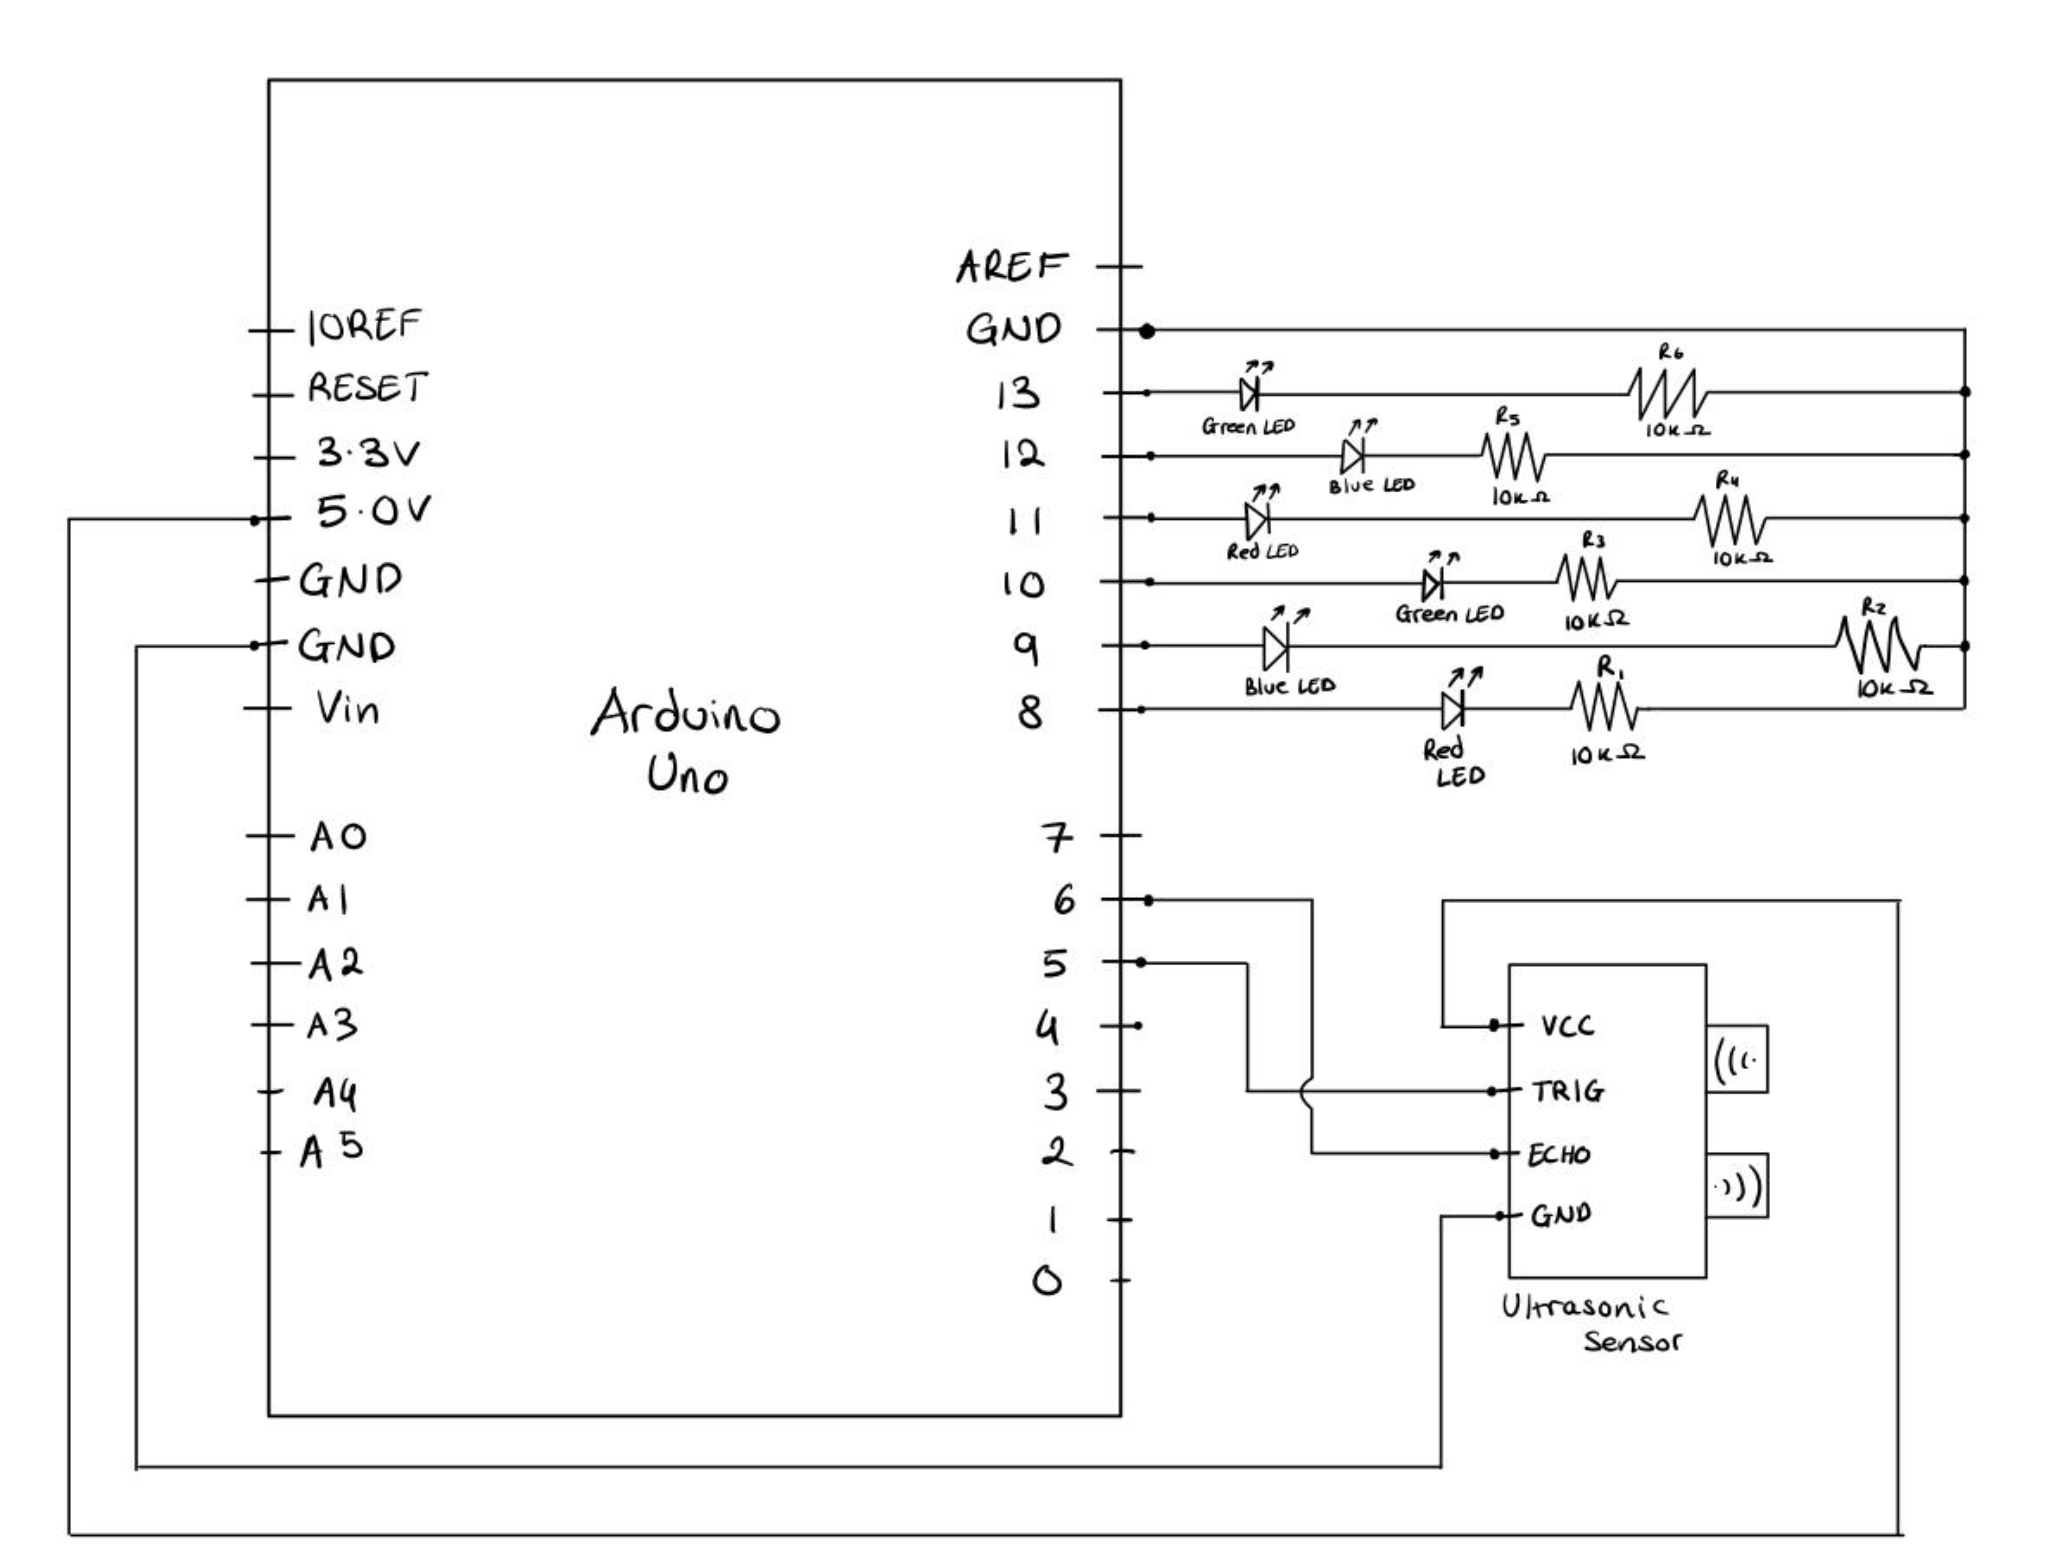 IOREF
RESET
3.3V
5.0V
GND
GND
Vin
A0
A1
A2
A3
A4
A5
Arduino
Uno
AREF
GND
13
12
11
10
9
8
7
6
5
4
3
2
1
0
Green LED
R6
10KΩ
Blue LED
R5
10KΩ
Red LED
R4
10KΩ
Green LED
R3
10KΩ
Blue LED
R2
10KΩ
Red
LED
R1
10KΩ
VCC
TRIG
ECHO
GND
Ultrasonic
Sensor